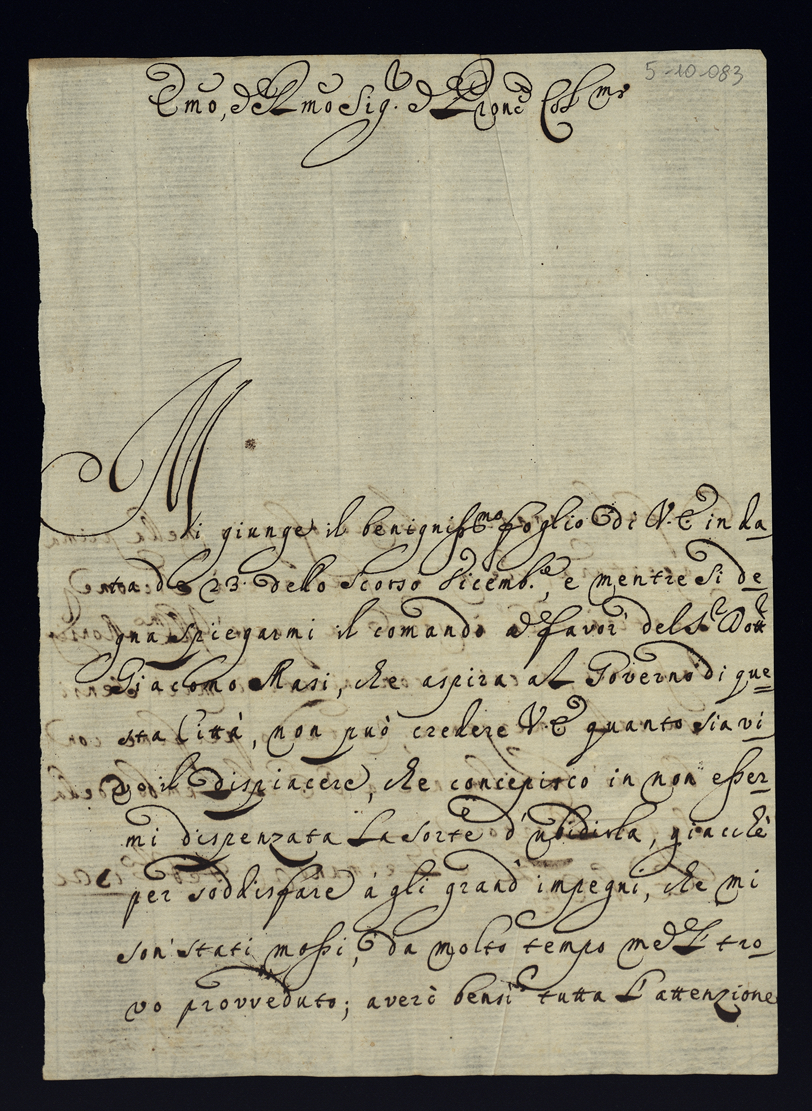 5-10-083
Emo, e Rmo Sig.r e Pron Col.mo
Mi giunge il benigniss.mo foglio di V. E in da=
ta de 23. dello scorso Dicemb.e, e mentre si de=
gna spiegarmi il comando a favor del S.r Dott.r
Giacomo Masi, che aspira al Governo di que=
sta Città, non può credere V E quanto sia vi=
vo il dispiacere, che concepisco in non esser=
mi dispenzata la sorte d'ubidirla, giacchè
per soddisfare à gli grand' impegni, che mi
son' stati mossi, da molto tempo me l' tro=
vo provveduto; averò bensì tutta l'attenzione